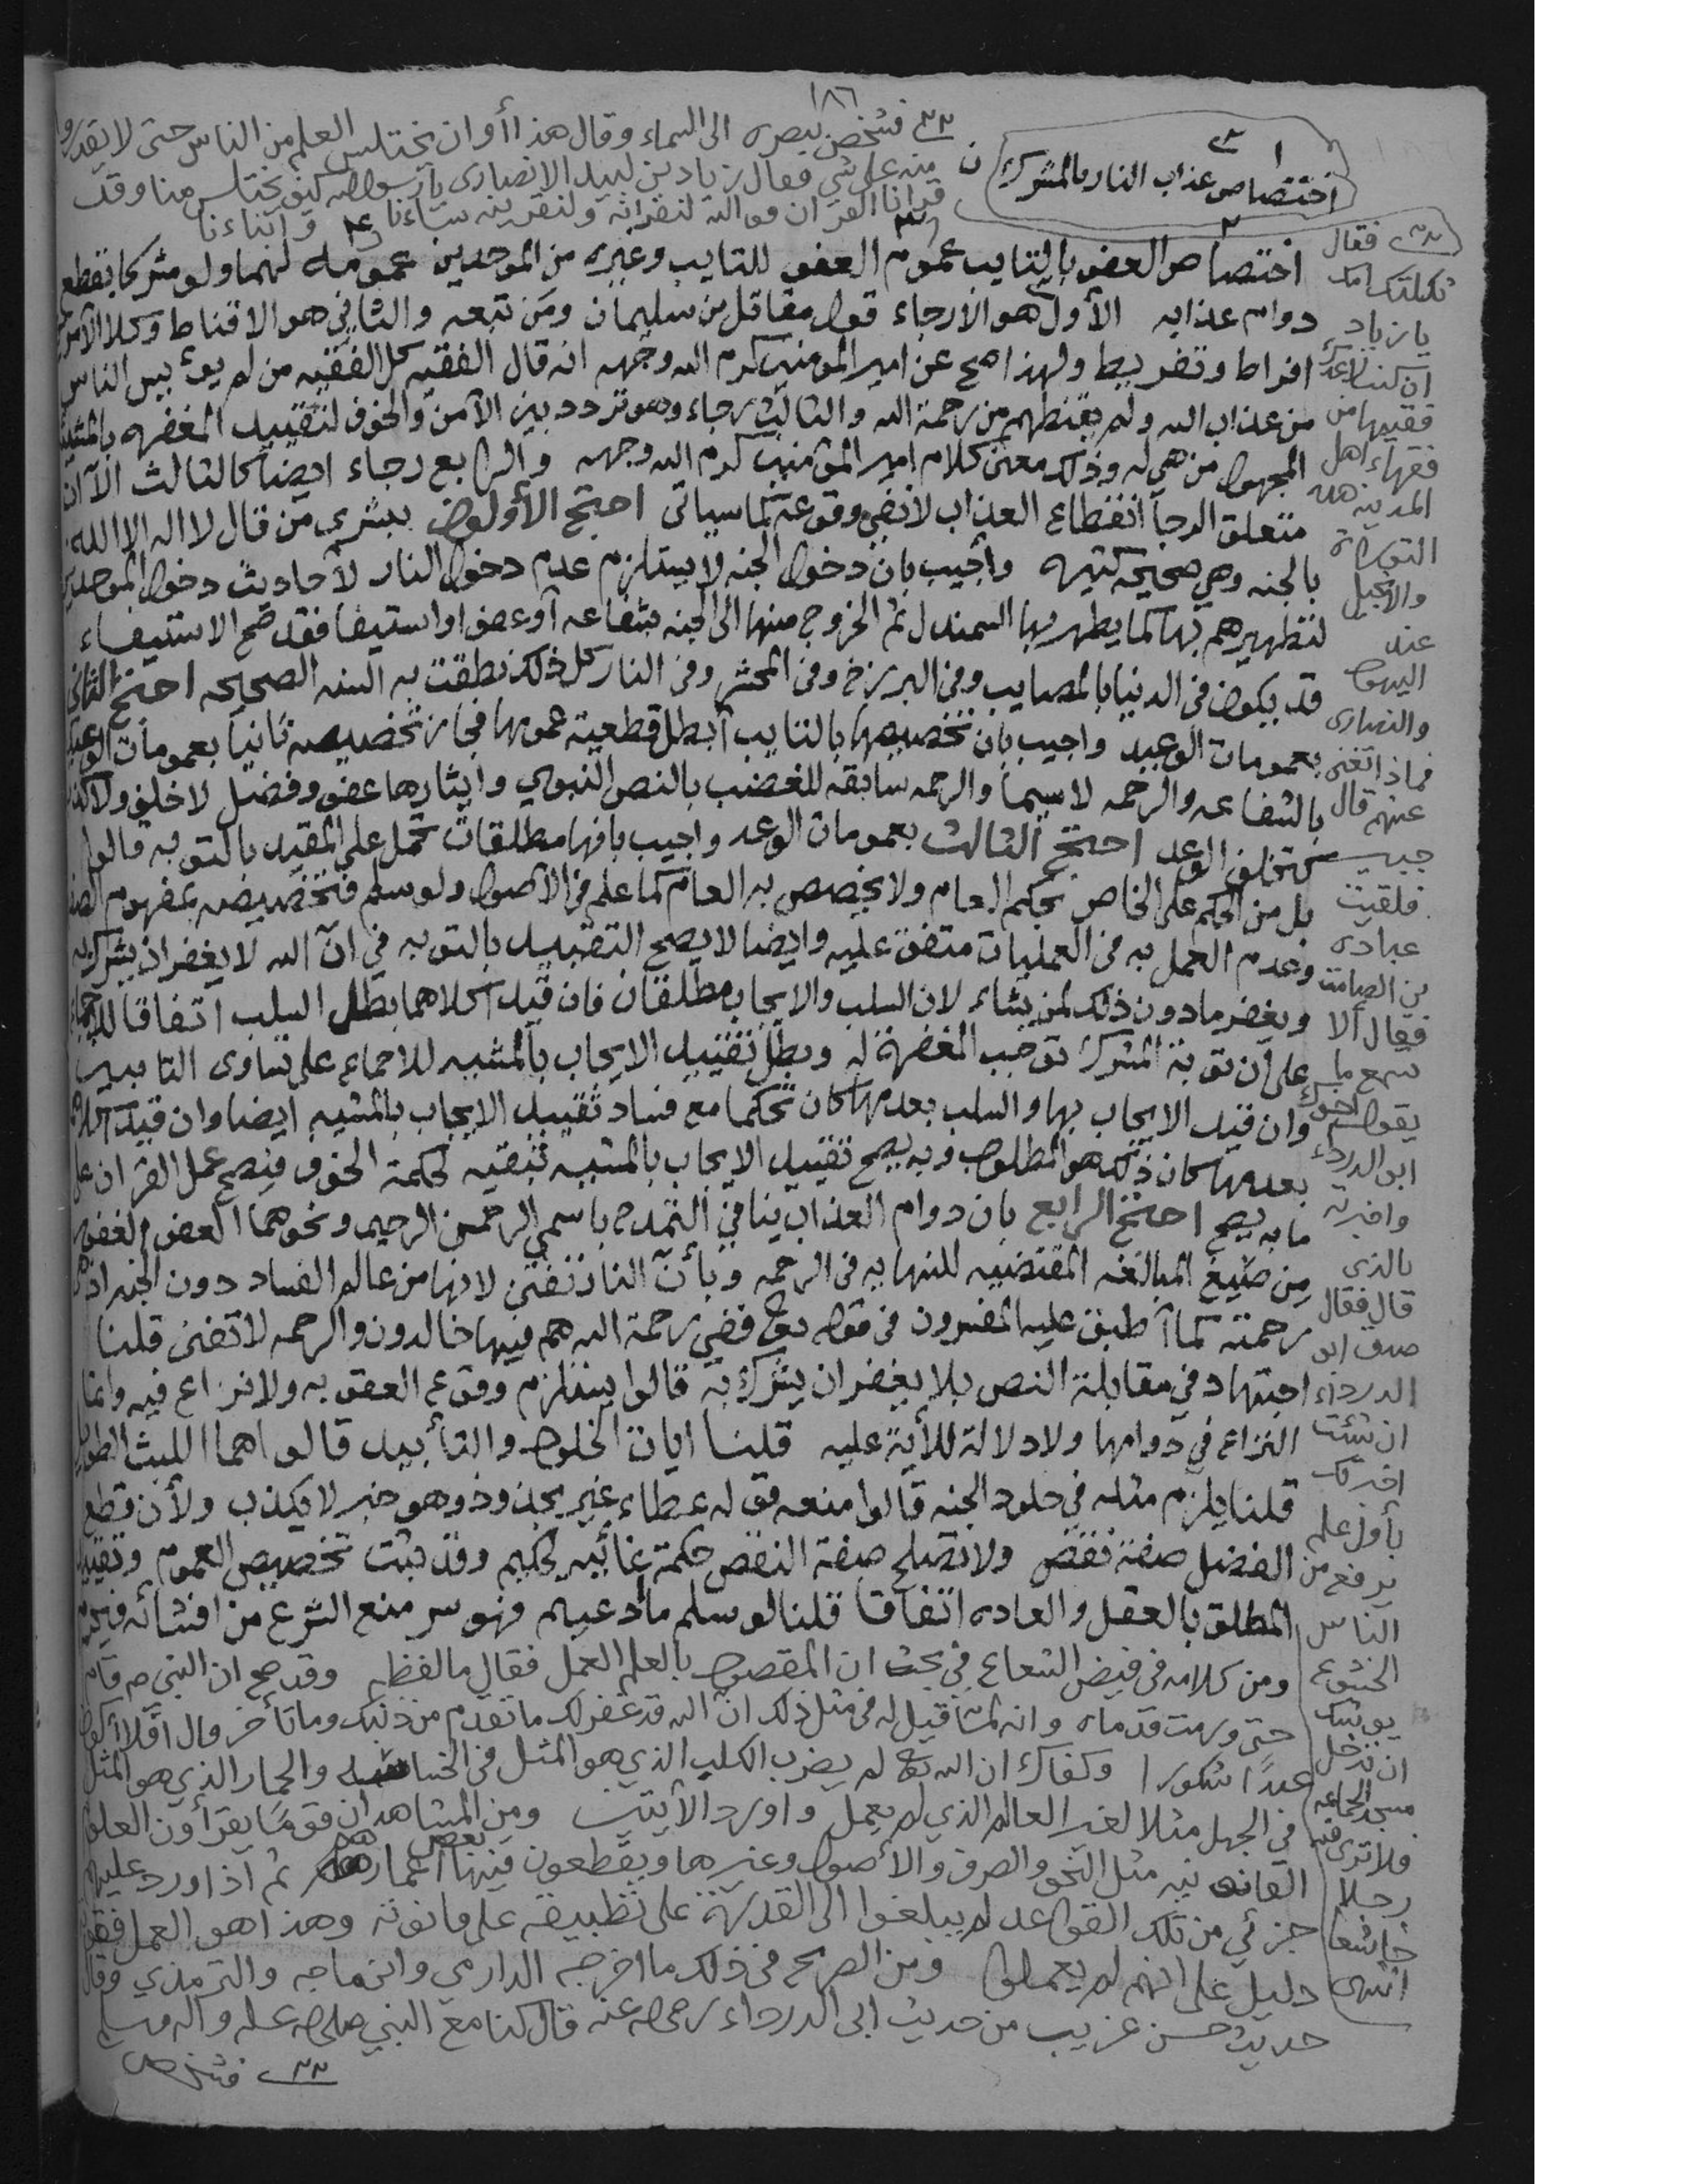 ١٨٦
اختصاص عذاب النار بالمشرك
فشخص ببصره الى السماء وقال هذا أوان يختلس العلم من الناس حتى لا يقدروا
منه على شي فقال زياد بن لبيد الانصارى يا رسول الله كيف يختلس منا وقد
قرانا القران فوالله لنقرانه ولنقرينه نساءنا وابناءنا
اختصاص العفو بالتايب عموم العفو للتايب وغيره من الموحدين عمومه لهما ولو مشركا بقطع
دوام عذابه الأول هو الارجاء قول مقاتل بن سليمان ومن تبعه والثاني هو الاقناط وكلا الأمرين
افراط وتفريط ولهذا صح عن امير المومنين كرم الله وجهه انه قال الفقيه كل الفقيه من لم يوئ بيس الناس
من عذاب الله ولم يقنطهم من رحمة الله والثالث رجاء وهو تردد بين الآمن والخوف لتقييد المغفره بالمشيئة
المجهول من هي له وذلك معنى كلام امير المؤمنين كرم الله وجهه والرابع رجاء ايضا كالثالث الآ ان
متعلق الرجآ انقطاع العذاب لا نفي وقوعه كما سياتى احتج الأولون ببشرى من قال لا اله الا الله
بالجنه وهي صحيحه كثيره وأجيب بان دخول الجنه لا يستلزم عدم دخول النار لأحاديث دخول الموحدين
لتطهيرهم بها كما يطهر بها السمندل ثم الخروج منها الى الجنه بشفاعه أو عفو او استيفا فقد صح الاستيفاء
قد يكون فى الدنيا بالمصايب وفى البرزخ وفى المحشر وفى النار كل ذلك نطقت به السنه الصحيحه احتج الثانى
بعمومات الوعيد واجيب بان تخصيصها بالتايب آبطل قطعية عمومها فجاز تخصيصه ثانيا بعمومات الوعد
بالشفاعه والرحمه لا سيما والرحمه سابقه للغضب بالنص النبوي وايثارها عفو وفضل لا خلف ولا كذب
تخلف الوعد احتج الثالث بعمومات الوعد واجيب بانها مطلقات تحمل على المقيد بالتوبه قالوا
بل من الحكم على الخاص بحكم العام ولا يخصص به العام كما علم فى الأصول ولو سلم فتخصيصه بمفهوم الصفه
وعدم العمل به فى العمليات متفق عليه وايضا لا يصح التقييد بالتوبه في انّ الله لا يغفر ان يشرك به
ويغفر ما دون ذلك لمن يشاء لان السلب والايجاب مطلقان فان قيد كلاهما بطل السلب اتفاقا للاجماع
على أن توبة المشرك توجب المغفرة له وبطل تقييد الايجاب بالمشيه للاجماع على تساوى التايبين
وان قيد الايجاب بها والسلب بعدمها كان تحكما مع فساد تقييد الايجاب بالمشيه ايضا وان قيد كلاهما
بعدمها كان ذلك هو المطلوب وبه يصح تقييد الايجاب بالمشيه تبقيه لحكمة الخوف فيصح عمل القران على
ما به يصح احتج الرابع بان دوام العذاب ينافي التمدح باسمي الرحمن الرحيم ونحوهما العفو الغفور
من صيغ المبالغه المقتضيه للنهايه فى الرحمه وبأنّ النار تفنى لانها من عالم الفساد دون الجنه اذ هى
رحمته كما آطبق عليه المفسرون فى قوله تع ففي رحمة الله هم فيها خالدون والرحمه لا تفنى قلنا
اجتهاد في مقابلة النص بلا يغفر ان يشرك به قالوا يستلزم وقوع العقوبه ولا نزاع فيه وانما
النزاع في دوامها ولا دلالة للأية عليه قلنا ايات الخلود والتأبيد قالوا هما اللبث الطويل
قلنا يلزم مثله في خلود الجنه قالوا منعه قوله عطاء غير مجذوذ وهو خبر لا يكذب ولأن قطع
الفضل صفة نقص ولا تصلح صفة النقص حكمة غائيه لحكيم وقد ثبت تخصيص العموم وتقييد
المطلق بالعقل والعاده اتفاقا قلنا لو سلم مادعيتم فهو سر منع الشرع من افشائه فيحرم
ومن كلامه فى فيض الشعاع في بحث ان المقصود بالعلم العمل فقال ما لفظه وقد صح ان النبي ص قام
حتى ورمت قدماه وانه لما قيل له فى مثل ذلك انّ الله قد غفر لك ما تقدم من ذنبك وما تأخر قال أفلا أكون
عبدًا شكورا وكفاك ان الله تع لم يضرب الكلب الذي هو المثل فى الخساسه والحمار الذي هو المثل
في الجهل مثلا لغير العالم الذي لم يعمل واورد الأيتين ومن المشاهد ان قومًا يقرأون العلوم
القانونيه مثل النحو والصرف والأصول وغيرها ويقطعون فيها بعض اعمارهم ثم اذا اورد عليهم
جزئي من تلك القواعد لم يبلغوا الى القدرة على تطبيقه على قانونه وهذا هو العمل ففيه
دليل على انهم لم يعملوا ومن الصريح فى ذلك ما اخرجه الدارمي وابن ماجه والترمذي وقال
حديث حسن غريب من حديث ابى الدرداء رضى الله عنه قال كنا مع النبي صلى الله عليه واله وسلم
فشخص
فقال
ثكلتك امك
يا زياد
ان كنت لاعدك
فقيها من
فقهاء اهل
المدينه هذه
التوراة
والانجيل
عند
اليهود
والنصارى
فماذا تغنى
عنهم قال
جبير
فلقيت
عباده
بن الصامت
فقال ألا
تسمع ما
يقول اخوك
ابو الدرداء
واخبرته
بالذى
قال فقال
صدق ابو
الدرداء
ان شئت
اخبرتك
بأول علم
يرفع من
الناس
الخشوع
يوشك
ان تدخل
مسجد الجماعه
فلا ترى فيه
رجلا
خاشعا
انتهى